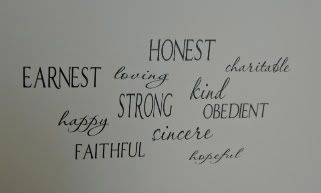 HONEST
EARNEST loving charitable
STRONG kind
happy OBEDIENT
sincere
FAITHFUL hopeful